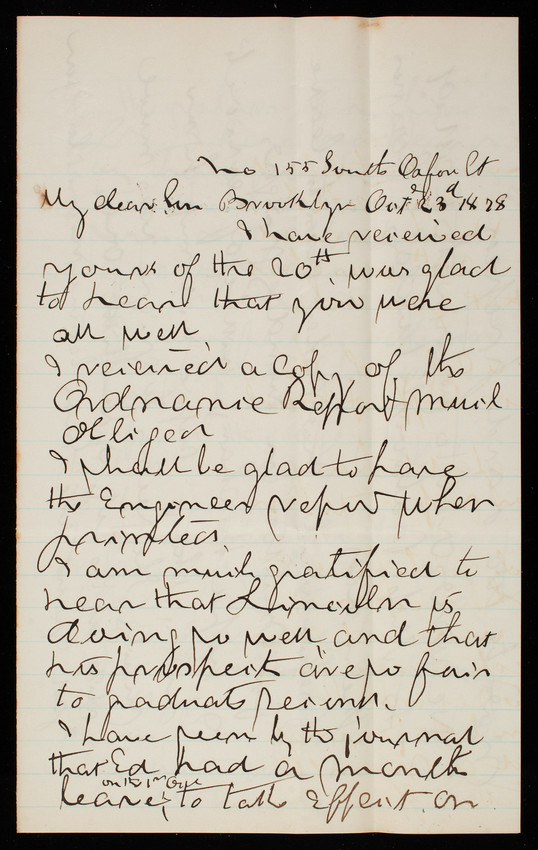 No 155 South Oxford St
My dear Son Brooklyn Oct 23d 1878
I have received
yours of the 20th, was glad
to hear that you were
all well.
I received a copy of the
Ordnance Report much
obliged
I shall be glad to have
the Engineer report when
printed.
I am much gratified to
hear that Lincoln is
doing so well and that
his prospects are so fair
to graduate second.
I have seen by the journal
that Ed had a month
on the 1st
leave, to take effect on